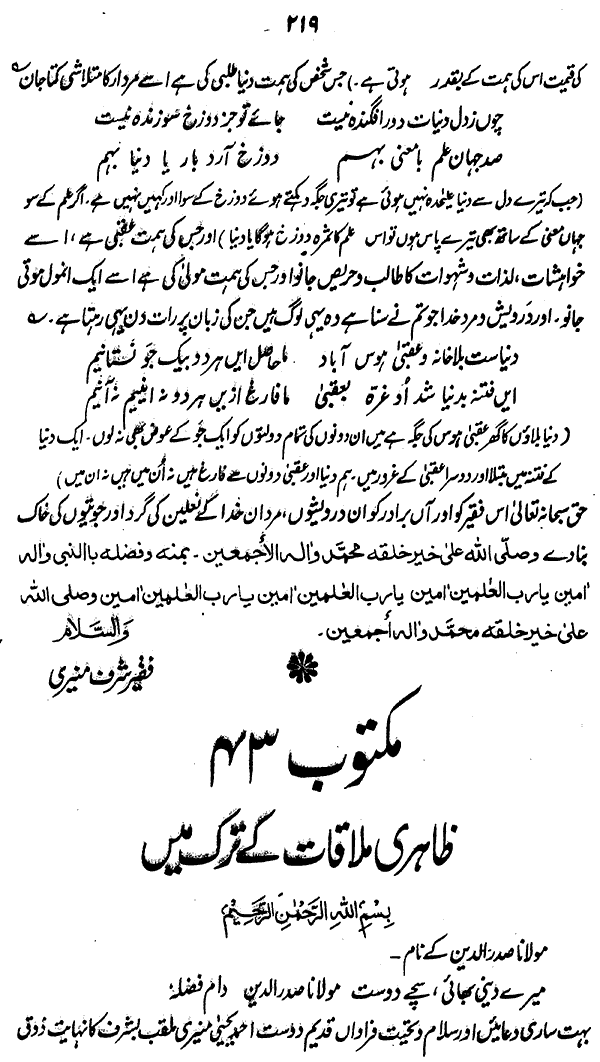 ۲۱۹
کی قیمت اس کی ہمت کے بقدر ہوتی ہے۔) جس شخص کی ہمت دنیا طلبی کی ہے اسے مردار کا متلاشی کتا جان ؎
چوں زدل دنیات دور افگندہ نیست جائے تو جز دوزخ سوزندہ نیست
صد جہان علم بامعنی بہم دوزخ آرد بار یا دنیا بہم
(جب کہ تیرے دل سے دنیا علیٰحدہ نہیں ہوئی ہے تو تیری جگہ دہکتے ہوئے دوزخ کے سوا اور کہیں نہیں ہے۔ اگر علم کے سو
جہاں معنی کے ساتھ بھی تیرے پاس ہوں تو اس علم کا ثمرہ دوزخ ہوگا یا دنیا) اور جس کی ہمت عقبیٰ ہے، اسے
خواہشات، لذات و شہوات کا طالب و حریص جانو اور جس کی ہمت مولیٰ کی ہے اسے ایک انمول موتی
جانو۔ اور درویش و مرد خدا جو تم نے سنا ہے وہ یہی لوگ ہیں جن کی زبان پر رات دن یہی رہتا ہے۔ ؎
دنیاست بلاخانہ و عقبیٰ ہوس آباد ما حاصل ایں ہر دو بیک جو نستانیم
ایں فتنہ بدنیا شد او غرہ بعقبیٰ ما فارغ ازیں ہر دو نہ اینیم نہ آنیم
(دنیا بلاؤں کا گھر عقبیٰ ہوس کی جگہ ہے میں ان دونوں کی تمام دولتوں کو ایک جو کے عوض بھی نہ لوں۔ ایک دنیا
کے فتنہ میں مبتلا اور دوسرا عقبیٰ کے غرور میں۔ ہم دنیا اور عقبیٰ دونوں سے فارغ ہیں نہ اُن میں ہیں نہ ان میں)
حق سبحانہ تعالیٰ اس فقیر کو اور آں برادر کو ان درویشوں، مردان خدا کے نعلین کی گرد اور جوتیوں کی خاک
بنادے وصلّی اللہ علیٰ خیر خلقہ محمّد واٰلہ الأجمعین۔ بمنہ وفضلہ باالنبی واٰلہ
اٰمین یارب العٰلمین اٰمین یارب العٰلمین اٰمین یارب العٰلمین اٰمین وصلی اللہ
علیٰ خیر خلقہ محمّد واٰلہ أجمعین۔ والسّلام
فقیر شرف منیری
مکتوب ۴۳
ظاہری ملاقات کے ترک میں
بِسْمِ اللہِ الرَّحْمٰنِ الرَّحِیْمِ
مولانا صدر الدین کے نام—
میرے دینی بھائی، سچے دوست مولانا صدر الدین دام فضلہٗ
بہت ساری دعائیں اور سلام و تحیت فراواں قدیم دوست احمد یحییٰ منیری ملقب بشرف کا نہایت ذوقی